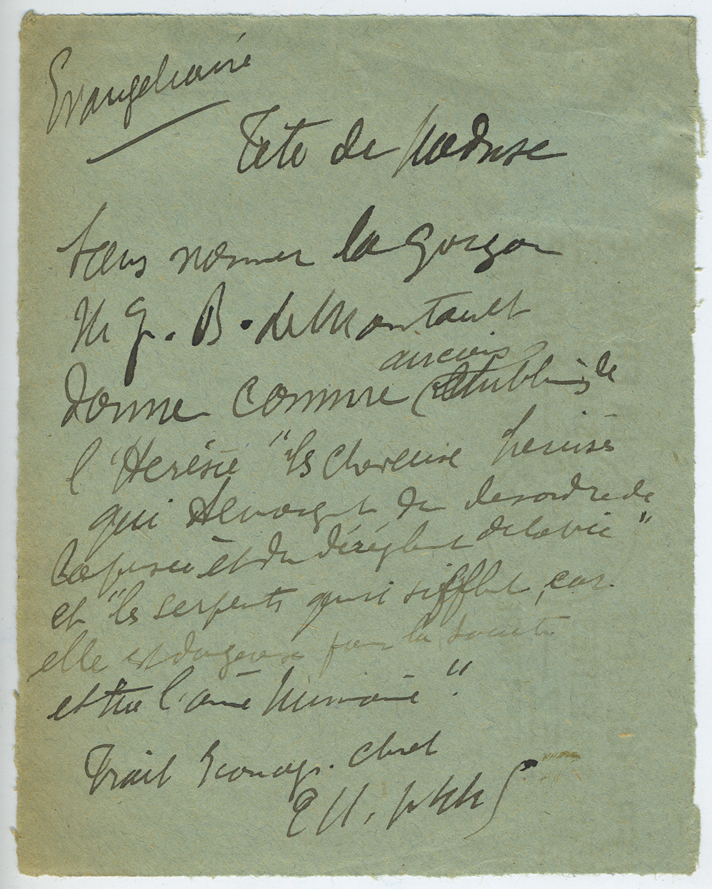 Evangeliaire
Tete de Meduse
Sans nommer la Gorgon
M gr. B. de Montault
ancien
donne comme de
l'Heresie "les cheveux herissés
qui temoignent du desordre de
la pensée et du déréglemt de la vie"
et "les serpents qui sifflent, car
elle est dangereuse pour la société
et tue l'ame humaine".
Trait Iconogr. chret